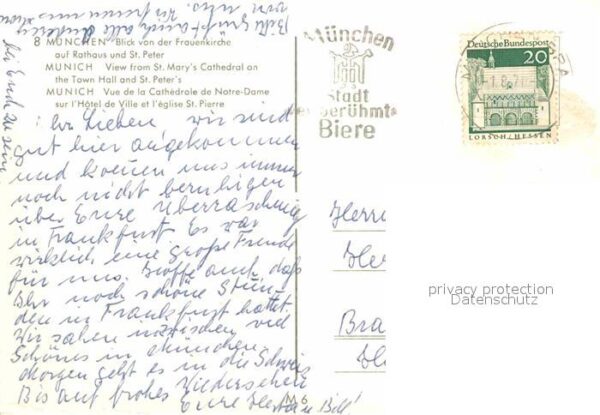 Bitte grüßt auch alle anderen
von uns. Wir freuen uns schon
bei Euch zu sein
8 MÜNCHEN Blick von der Frauenkirche
auf Rathaus und St. Peter
MUNICH View from St. Mary's Cathedral on
the Town Hall and St. Peter's
MUNICH Vue de la Cathédrale de Notre-Dame
sur l'Hôtel de Ville et l'église St. Pierre
Ihr Lieben wir sind
gut hier angekommen
und koennen uns immer
noch nicht beruhigen
über Eure Überraschung
in Frankfurt. Es war
wirklich eine große Freude
für uns. Hoffe auch daß
Ihr noch schöne Stun-
den in Frankfurt hattet.
Wir sahen inzwischen viel
Schönes in München.
Morgen geht es in die Schweiz
Bis auf frohes Wiedersehen
Eure Herta u. Bill!
M 6
München
Stadt
berühmte
Biere
1.8.71
Deutsche Bundespost
20
LORSCH/HESSEN
Herrn
Bra
privacy protection
Datenschutz